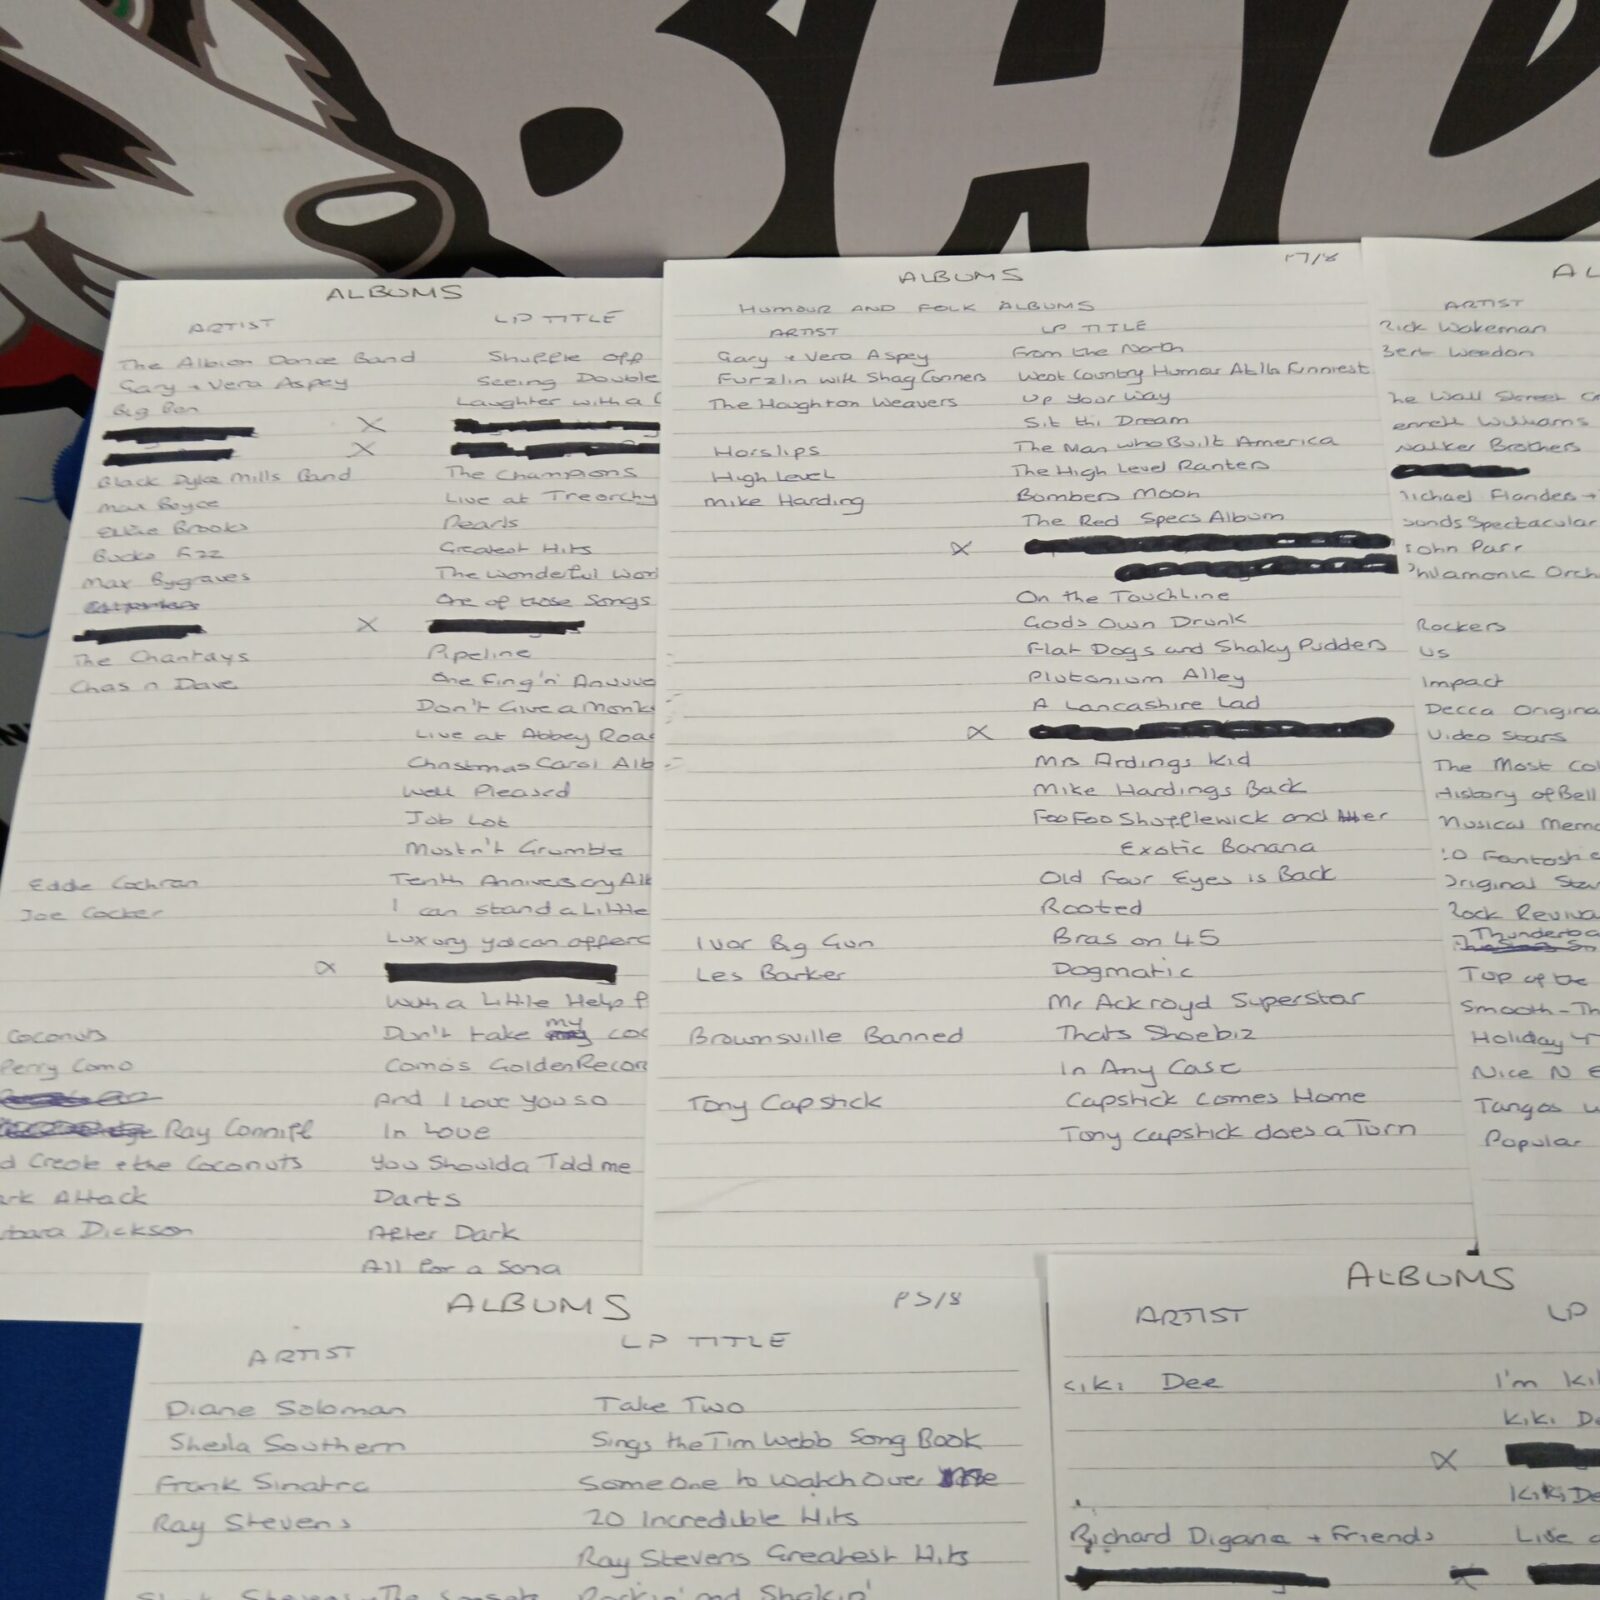 BAD
ALBUMS
ARTIST LP TITLE
The Albion Dance Band Shuffle off
Gary + Vera Aspey Seeing Double
Big Ben Laughter with a
X
X
Black Dyke Mills Band The Champions
Max Boyce Live at Treorchy
Elkie Brooks Pearls
Bucks Fizz Greatest Hits
Max Bygraves The Wonderful Worl
One of those Songs
X
The Chantays Pipeline
Chas n Dave One Fing 'n' Anuvve
Don't Give a Monk
Live at Abbey Road
Christmas Carol Alb
Well Pleased
Job Lot
Mustn't Grumble
Eddie Cochran Tenth Anniversary Alb
Joe Cocker I can stand a Little
Luxury you can afford
X
With a Little Help f
Coconuts Don't take my coc
Perry Como Como's Golden Recor
And I Love you so
Ray Conniff In Love
d Creole + the Coconuts You Shoulda Told me
ark Attack Darts
rbara Dickson After Dark
All for a Song
ALBUMS 17/8
HUMOUR AND FOLK ALBUMS
ARTIST LP TITLE
Gary + Vera Aspey From the North
Furzlin with Shag Conners West Country Humor At Its Funniest
The Houghton Weavers Up Your Way
Sit thi Dream
Horslips The Man who Built America
High Level The High Level Ranters
Mike Harding Bombers Moon
The Red Specs Album
X
On the Touchline
Gods Own Drunk
Flat Dogs and Shaky Pudders
Plutonium Alley
A Lancashire Lad
X
Mrs Ardings Kid
Mike Hardings Back
Foo Foo Shufflewick and Her
Exotic Banana
Old Four Eyes is Back
Rooted
Ivor Big Gun Bras on 45
Les Barker Dogmatic
Mr Ackroyd Superstar
Brownsville Banned Thats Shoebiz
In Any Case
Tony Capstick Capstick Comes Home
Tony Capstick does a Turn
AL
ARTIST
Rick Wakeman
Bert Weedon
he Wall Street Cr
enneth Williams
Walker Brothers
Michael Flanders +
ounds Spectacular
John Parr
Philamonic Orch
Rockers
Us
Impact
Decca Origina
Video Stars
The Most Col
History of Bell
Musical Memo
20 Fantastic
Original Star
Rock Reviva
Thunderbi
Top of the
Smooth - Th
Holiday
Nice N E
Tangos
Popular
ALBUMS P5/8
ARTIST LP TITLE
Diane Soloman Take Two
Sheila Southern Sings the Tim Webb Song Book
Frank Sinatra Someone to Watch Over Me
Ray Stevens 20 Incredible Hits
Ray Stevens Greatest Hits
Rockin' and Shakin'
ALBUMS
ARTIST LP
Kiki Dee I'm Ki
Kiki De
X
Kiki De
Richard Digance + Friends Live
X